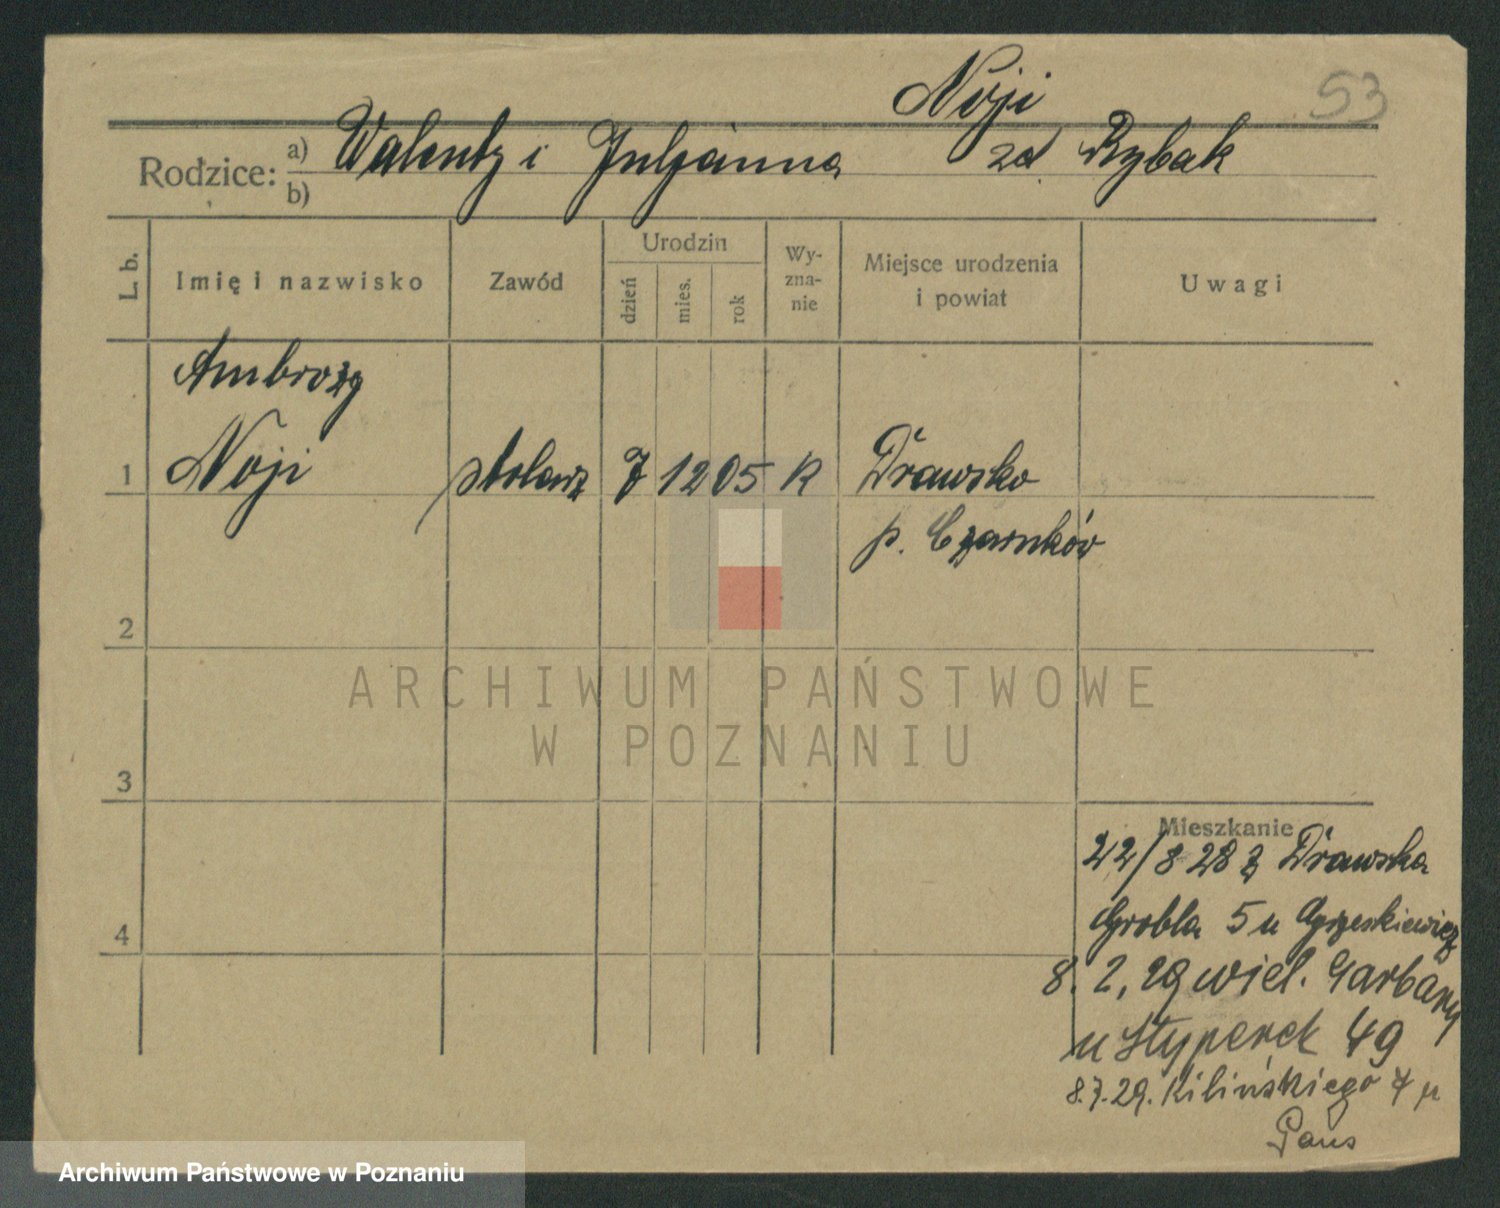 Noji
53
Rodzice: a) Walenty i Juljanna zd. Rybak
b)
L. b. Imię i nazwisko Zawód Urodzin dzień mies. rok Wy-zna-nie Miejsce urodzenia i powiat Uwagi
Ambroży
1 Noji stolarz 7 12 05 R Drawsko
p. Czarnków
2
ARCHIWUM PAŃSTWOWE
W POZNANIU
3
Mieszkanie
22/8 28 z Drawska
Grobla 5 u Grzeskiewicz
4
8.2.29 wiel. Garbary
u Styperek 49
8.7.29. Kilińskiego 7 u
Gans
Archiwum Państwowe w Poznaniu